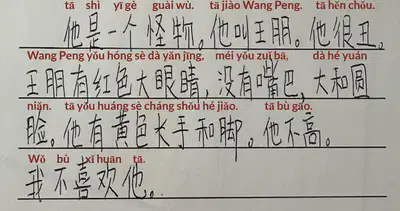 tā shì yī gè guài wù. tā jiào Wang Peng. tā hěn chǒu.
他是一个怪物。他叫王朋。他很丑。
Wang Peng yǒu hóng sè dà yǎn jīng, méi yǒu zuǐ bā, dà hé yuán
王朋有红色大眼睛，没有嘴巴，大和圆
niǎn. tā yǒu huáng sè cháng shǒu hé jiǎo. tā bù gāo.
脸。他有黄色长手和脚。他不高。
Wǒ bù xǐ huān tā.
我不喜欢他。